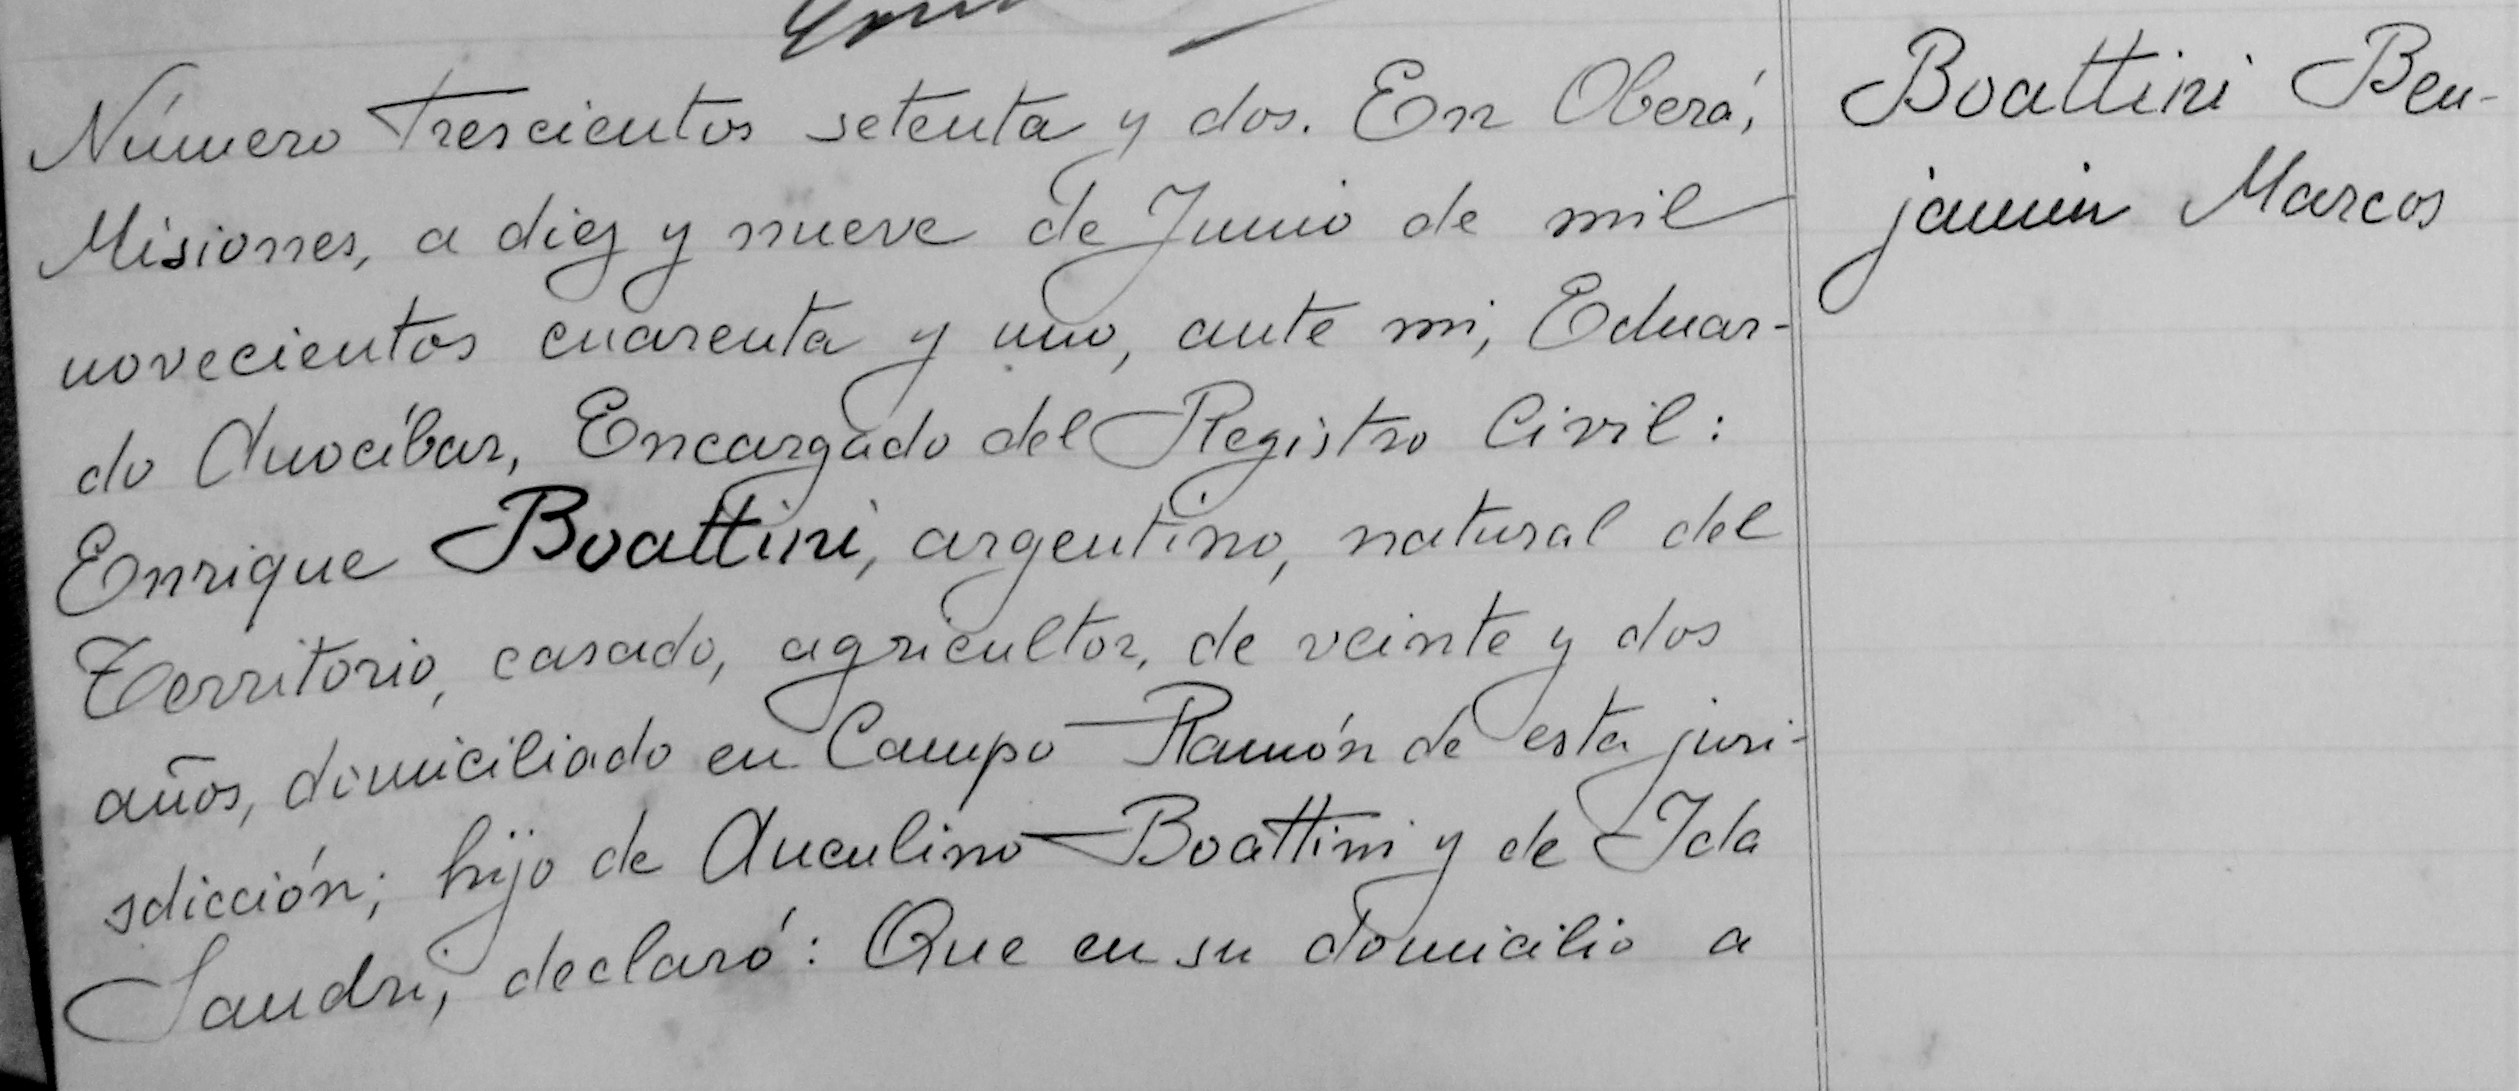 Número trescientos setenta y dos. En Oberá,
Misiones, a diez y nueve de Junio de mil
novecientos cuarenta y uno, ante mi, Eduar-
do Anocíbar, Encargado del Registro Civil:
Enrique Boattini, argentino, natural del
Territorio, casado, agricultor, de veinte y dos
años, domiciliado en Campo Ramón de esta juri-
sdicción; hijo de Anculino Boattini y de Ida
Sandri, declaró: Que en su domicilio a
Boattini Ben-
jamin Marcos